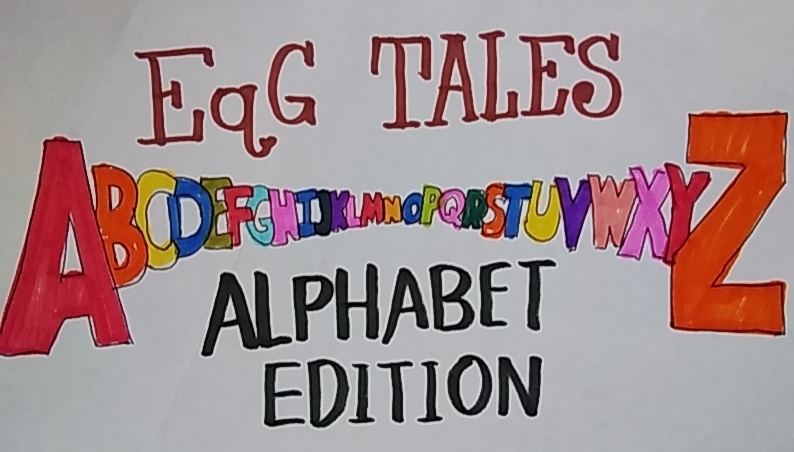 EqG TALES
ABCDEFGHIJKLMNOPQRSTUVWXYZ
ALPHABET
EDITION